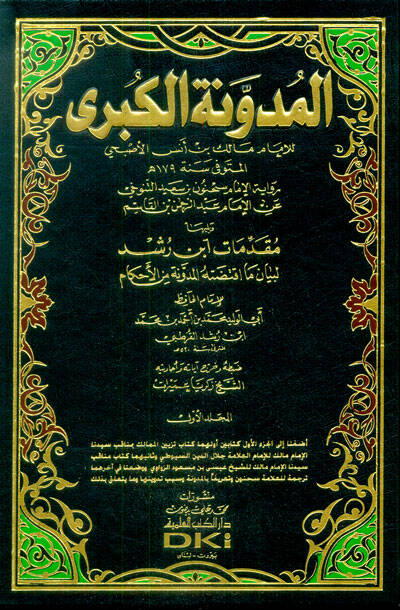 المدوَّنة الكبرى
للإمام مالك بن أنس الأصبحي
المتوفى سنة ١٧٩هـ
رواية الإمام سحنون بن سعيد التنوخي
عن الإمام عبد الرحمن بن القاسم
ويليها
مقدمات ابن رشد
لبيان ما اقتضته المدونة من الأحكام
للإمام الحافظ
أبي الوليد محمد بن أحمد بن محمد
ابن رشد القرطبي
المتوفى سنة ٥٢٠هـ
ضبطه وخرج آياته وأحاديثه
الشيخ زكريا عميرات
المجلد الأول
أضفنا إلى الجزء الأول كتابين أولهما كتاب تزيين الممالك بمناقب سيدنا
الإمام مالك للإمام العلامة جلال الدين السيوطي وثانيهما كتاب مناقب
سيدنا الإمام مالك للشيخ عيسى بن مسعود الزواوي ووضعنا في آخرهما
ترجمة للعلامة سحنون وتعريفاً بالمدونة وسبب تدوينها وما يتعلق بذلك
منشورات
محمد علي بيضون
دار الكتب العلمية
DKi
بيروت - لبنان